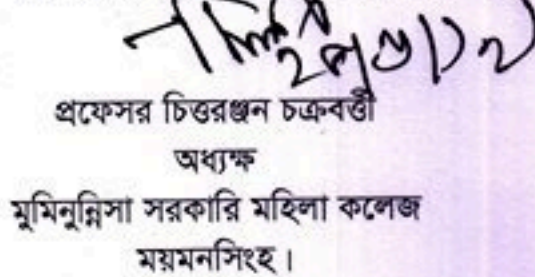 প্রফেসর চিত্তরঞ্জন চক্রবর্ত্তী
অধ্যক্ষ
মুমিনুন্নিসা সরকারি মহিলা কলেজ
ময়মনসিংহ।